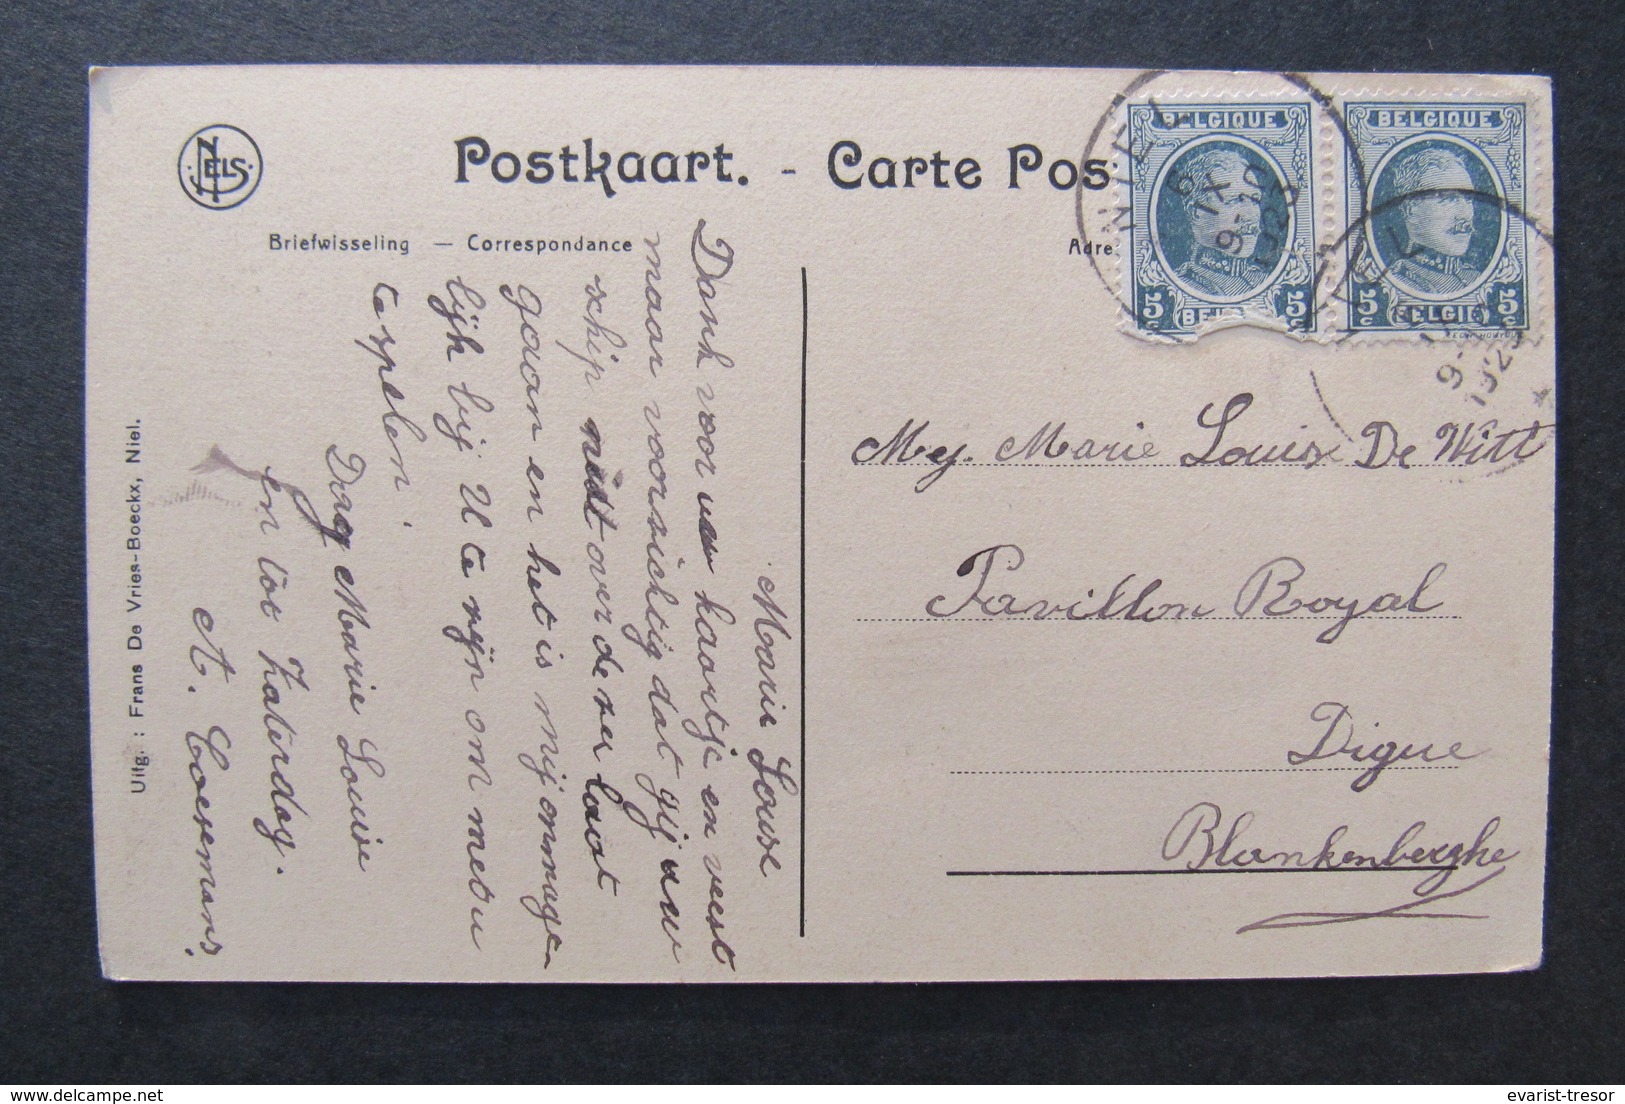 NELS
Postkaart. - Carte Pos
Briefwisseling — Correspondance
Adre
BELGIQUE
5c BEL 5c
BELGIQUE
5c BELGIE 5c
NIEL
6
IX
9-10
1923
NIEL
9-
1923
Mej. Marie Louise De Witt
Pavillon Royal
Digue
Blankenberghe
Marie Louise
Dank voor uw kaartje en weest
maar voorzichtig dat gij uw
schip niet over de zee laat
gaan en het is mij onmoge-
lijk bij U te zijn om met u
te spelen.
Dag Marie Louise
en tot Zaterdag.
A. Coesemans.
Uitg. : Frans De Vries-Boeckx, Niel.
evarist-tresor